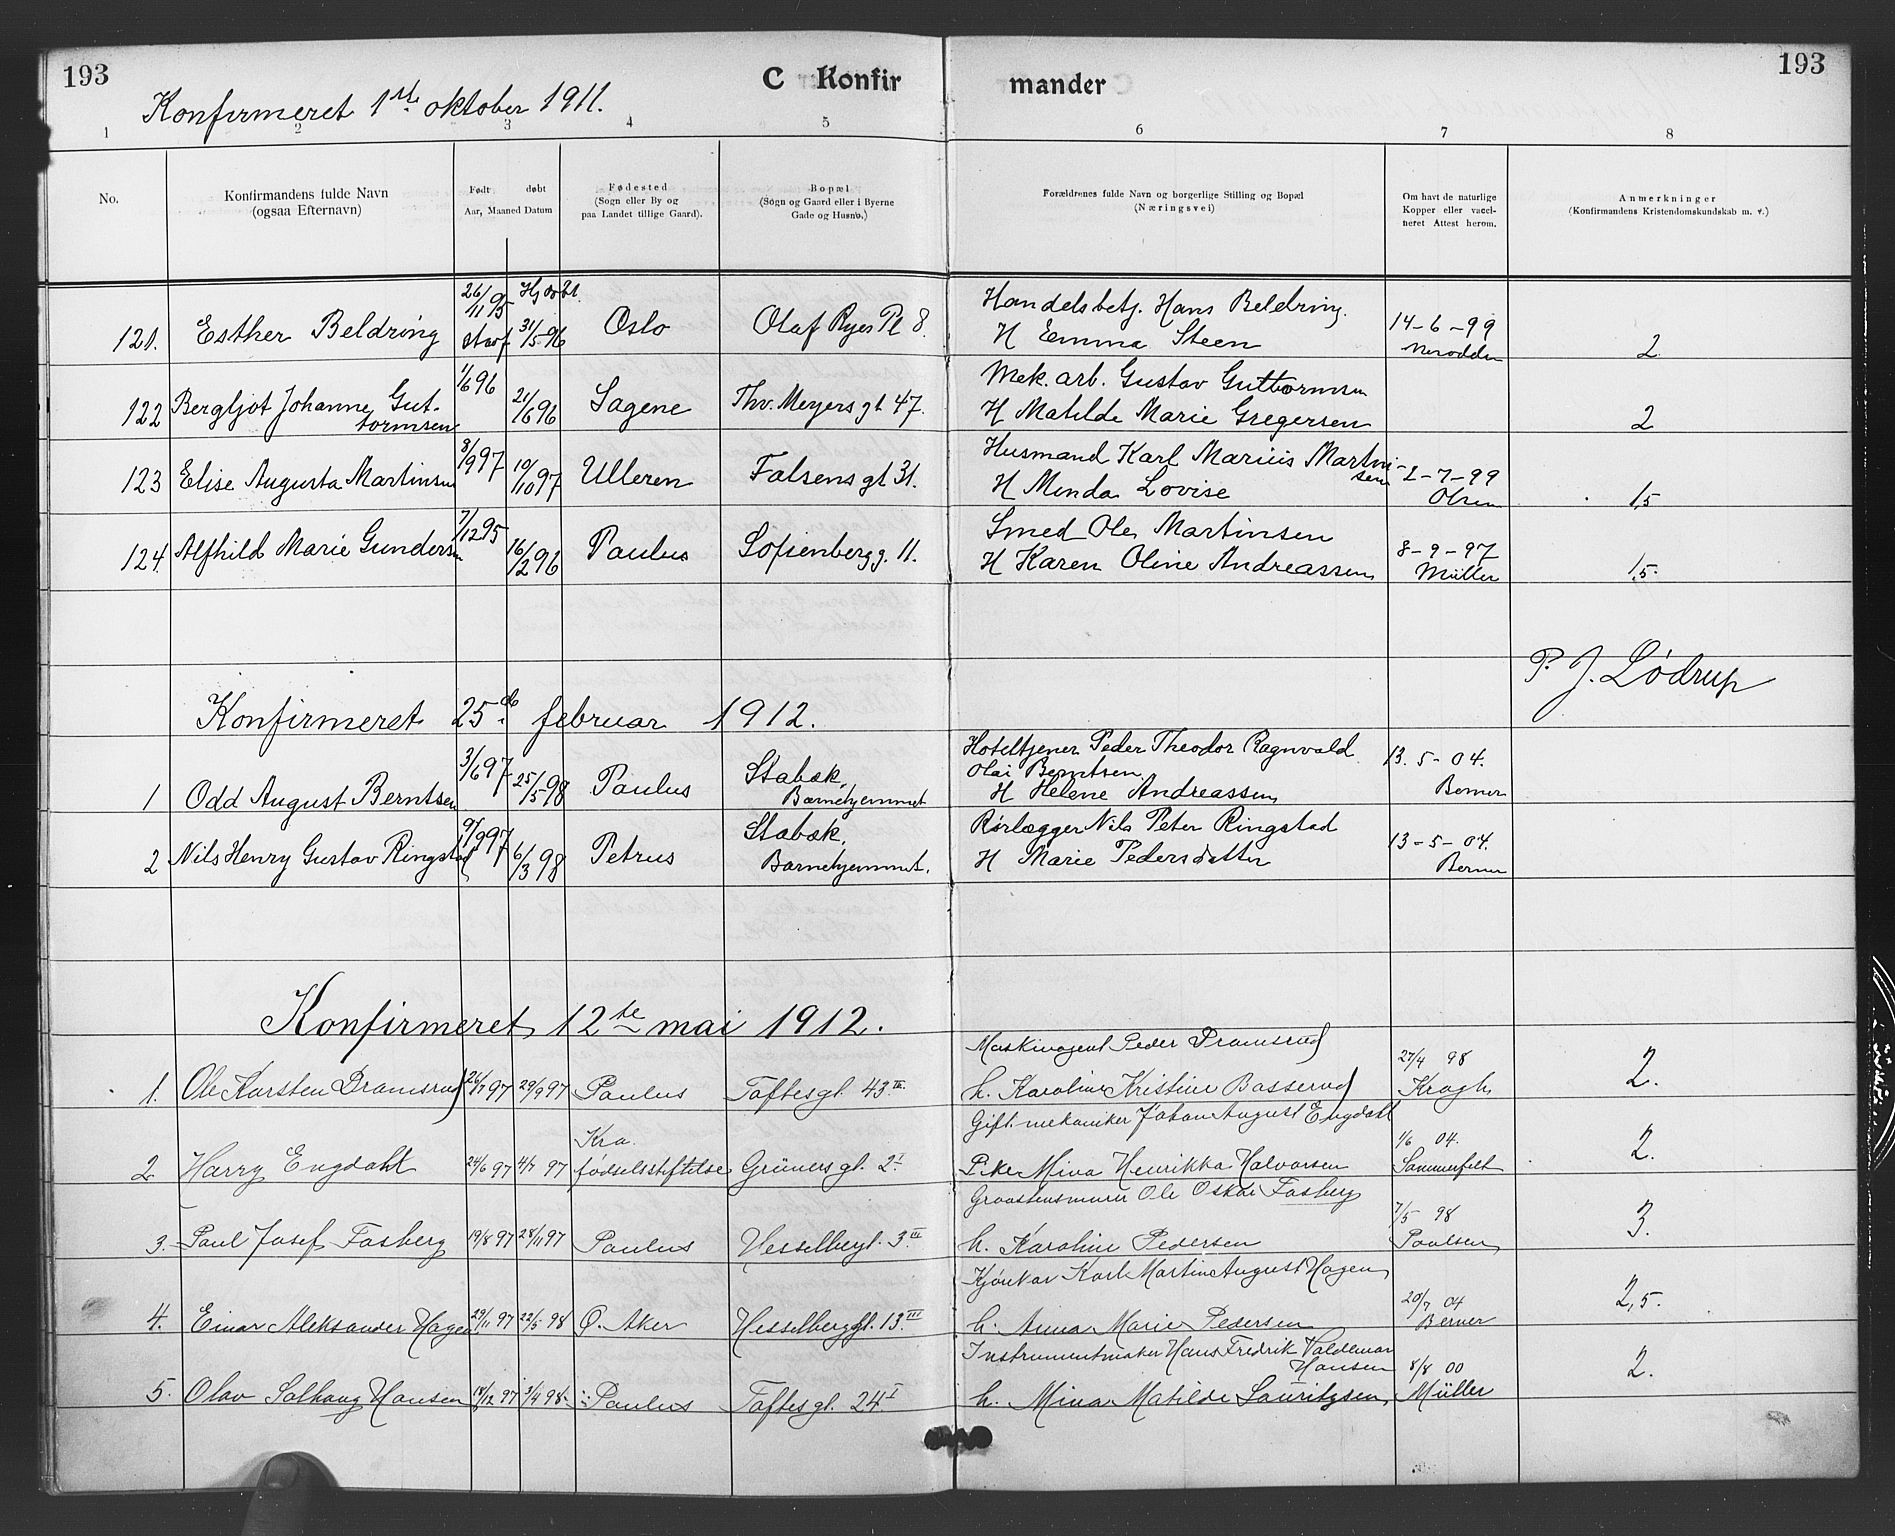 193
C Konfir mander
193
Konfirmeret 1ste oktober 1911.
1 2 3 4 5 6 7 8
No.
Konfirmandens fulde Navn
(ogsaa Efternavn)
Født døbt
Aar, Maaned Datum
Fødested
(Sogn eller By og
paa Landet tillige Gaard).
Bopæl
(Sogn og Gaard eller i Byerne
Gade og Husno.)
Forældrenes fulde Navn og borgerlige Stilling og Bopæl
(Næringsvei)
Om havt de naturlige
Kopper eller vacci-
neret Attest herom.
Anmerkninger
(Konfirmandens Kristendomskundskab m. v.)
26/11 95 Hj.døbt. Handelsbetj. Hans Beldring.
121. Esther Beldring 31/5-96 Oslo Olaf Ryes Pl 8. H Emma Steen 14-6-99 2
1/6 96 Mek. arb. Gustav Guttormsen
122 Bergljot Johanne Gut-
tormsen 21/6 96 Sagene Thv. Meyers gt 47. H Matilde Marie Gregersen 2
8/9 97 Husmand Karl Marius Martin-
sen
123 Elise Augusta Martinsen 10/10 97 Ulleren Falsens gt 31. H Minda Lovise 2-7-99
Olsen 1,5
7/12 95 Smed Ole Martinsen
124. Alfhild Marie Gundersen 16/2 96 Paulus Sofienberg g. 11. H Karen Oline Andreassen 8-9-97
Müller 1,5.
P. J. Lødrup
Konfirmeret 25de februar 1912.
3/6 97 Hoteltjener Peder Theodor Ragnvald
Olai Berntsen
1 Odd August Berntsen 25/5-98 Paulus Stabæk,
Barnehjemmet H Helene Andreassen 13.5-04.
Berner
9/9 97 Rørlægger Nils Peter Ringstad
2 Nils Henry Gustav Ringstad 6/3 98 Petrus Stabæk,
Barnehjemmet. H Marie Pedersdatter 13-5-04.
Berner
Konfirmeret 12te mai 1912.
Maskinagent Peder Dramsrud
1. Ole Karsten Dramsrud 26/7 97 29/9 97 Paulus Toftesgt. 43 III. h. Karoline Kristine Basserud 27/4 98
Krogh 2.
Gift. mekaniker Johan August Engdahl
2. Harry Engdahl 24/6 97 4/7 97 Kra.
fødselsstiftelse Grünersgt. 2 I Pike Mina Henrikka Halvorsen 1/6 04.
Sommerfelt 2.
Graastensmurer Ole Oskar Fosberg
3. Paul Josef Fosberg 19/8 97 28/11 97 Paulus Hesselbergt. 3 III h. Karoline Pedersen 7/5 98
Paulsen 3.
Kjørekar Karl Martin August Hagen
4. Einar Aleksander Hagen 29/11 97 22/5 98 Ø. Aker Hesselberggt. 13 III h. Anna Marie Pedersen 20/7 04
Berner 2,5.
Instrumentmaker Hans Fredrik Valdemar
Hansen
5. Olav Solhaug Hansen 18/12 97 3/4 98 Paulus Toftesgt. 24 I h. Mina Matilde Lauritzsen 8/8 00
Müller 2.